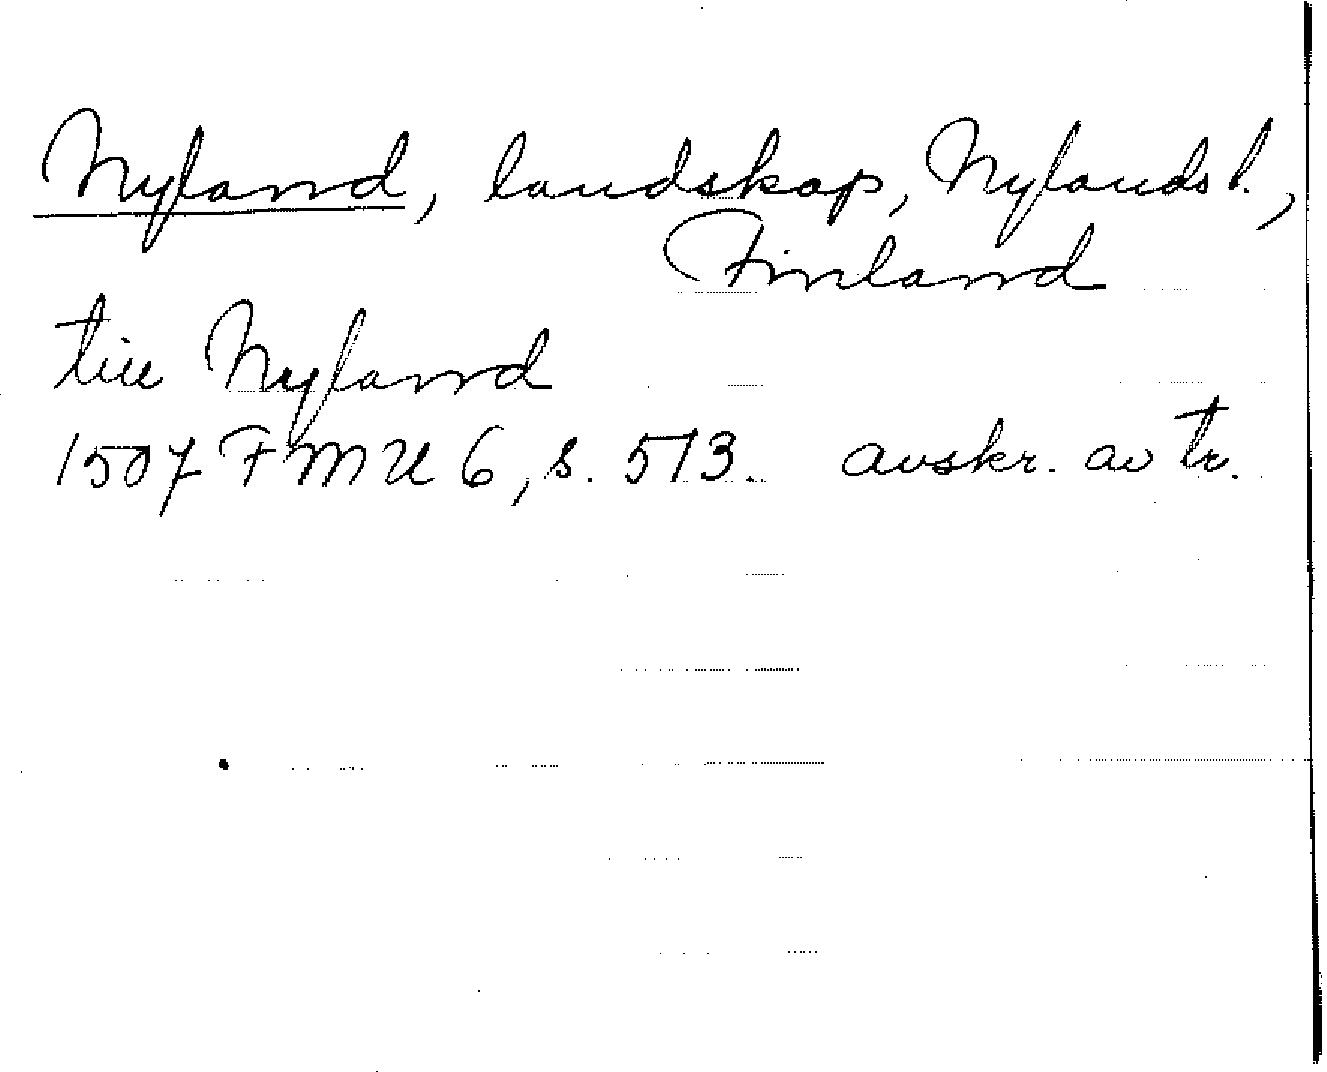 Nyland, landskap, Nylands l.,
Finland
till Nyland
1507 FMU 6, s. 513. avskr. av tr.